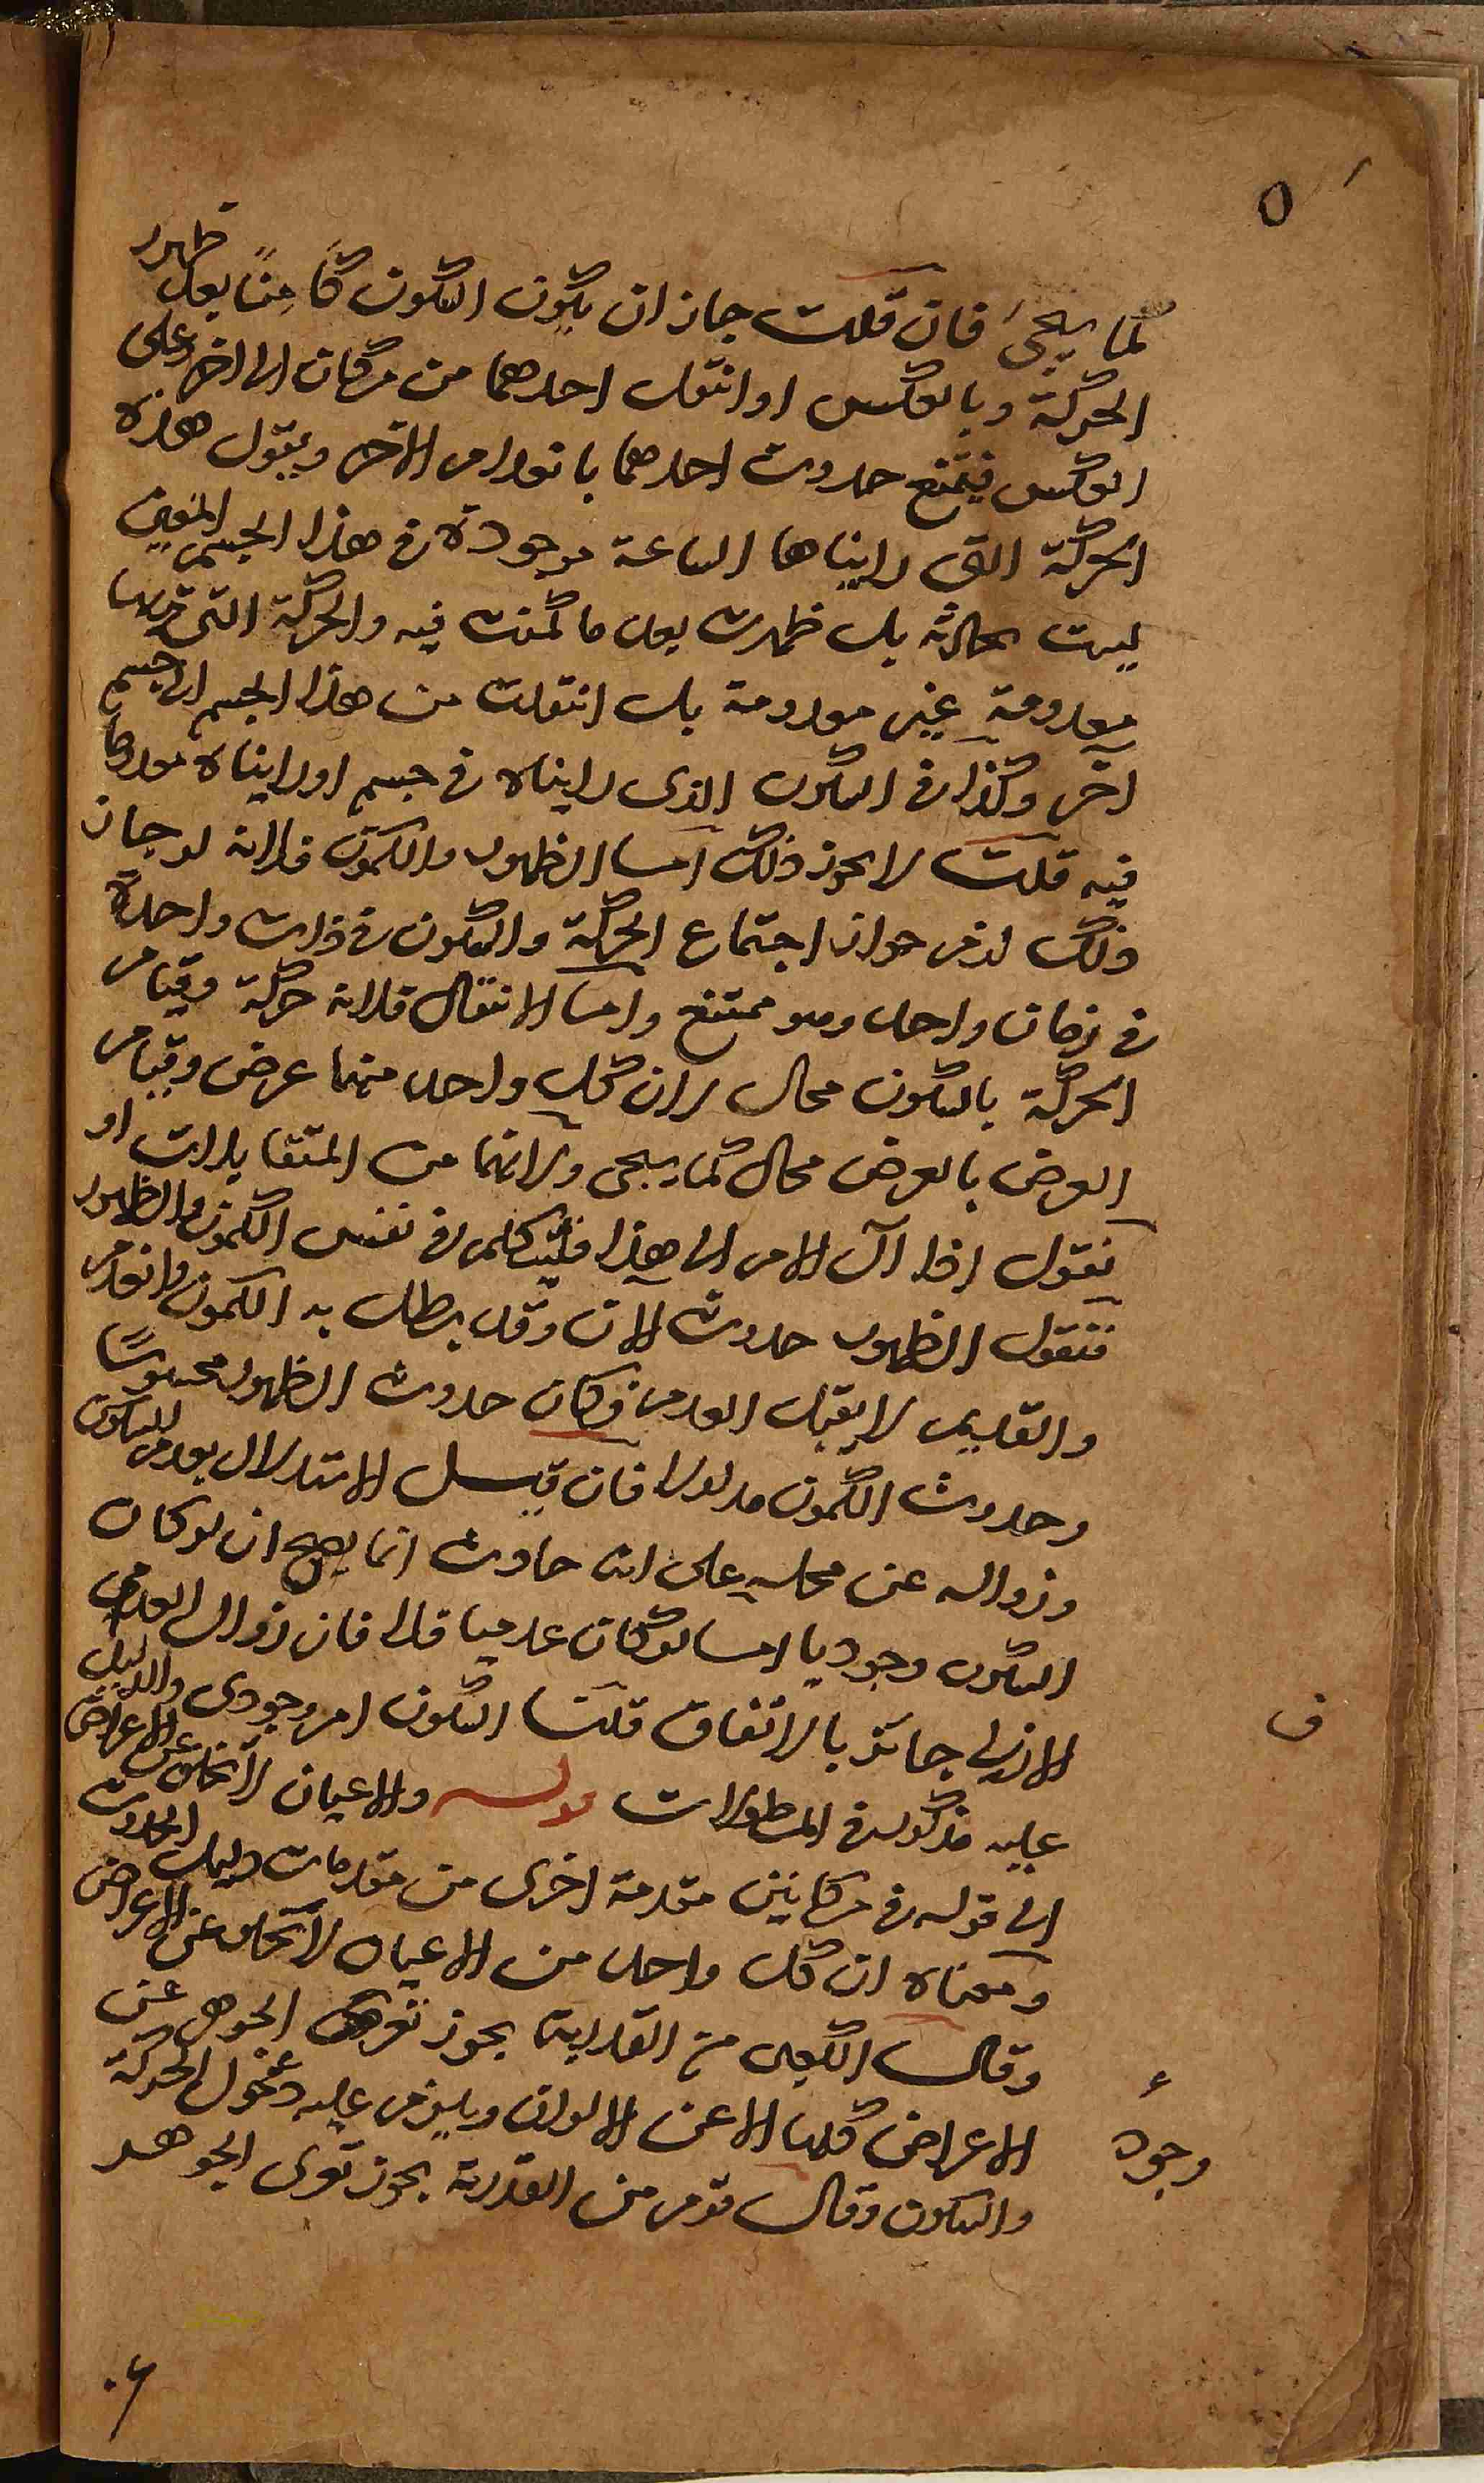 ٥
لما يجئ فان قلت جاز ان يكون السكون كامنًا بعد ظهور
الحركة وبالعكس او انتقل احدهما من مكان الى اخر وعلى
العكس فيمتنع حدوث احدهما بانعدام الآخر ويقول هذه
الحركة التى رايناها الساعة موجودة فى هذا الجسم المعين
ليست بحادثه بل ظهرت بعد ما كمنت فيه والحركة التى
معدومة غير معدومة بل انتقلت من هذا الجسم الى جسم
آخر وكذا فى السكون الذى رايناه فى جسم او رايناه معدوما
فيه قلت لا يجوز ذلك اما الظهور والكمون فلانه لو جاز
ذلك لزم جواز اجتماع الحركة والسكون فى ذات واحدة
فى زمان واحد وهو ممتنع واما الانتقال فلانه حركة وقيام
الحركة بالسكون محال لان كل واحد منهما عرض وقيام
العرض بالعرض محال كما سيجى ولانهما من المتقابلات او
نقول اذا آل الامر الى هذا فليتكلم فى نفس الكمون والظهور
فنقول الظهور حدوث الآن وقد بطل به الكمون وانعدم
والقديم لا يقبل العدم فكان حدوث الظهور محسوسًا
وحدوث الكمون مدلولا فان قيل الاستدلال بعدم السكون
وزواله عن محله على انه حادث انما يصح ان لو كان
السكون وجوديا اما لو كان عدميا فلا فان زوال العدم
الازلى جائز بالاتفاق قلنا السكون امر وجودى والدليل
عليه مذكور فى المطولات قوله والاعيان لا تخلو عن الاعراض
الى قوله فى مكانين مقدمة اخرى من مقدمات دليل الحدوث
ومعناه ان كل واحد من الاعيان لا تخلو عن الاعراض
وقال الكعبى من القدرية يجوز الجوهر عن
الاعراض كلها الا عن الالوان ويلزم عليه دخول الحركة
والسكون وقال قوم من القدرية يجوز تعرى الجوهر
ف
وجود